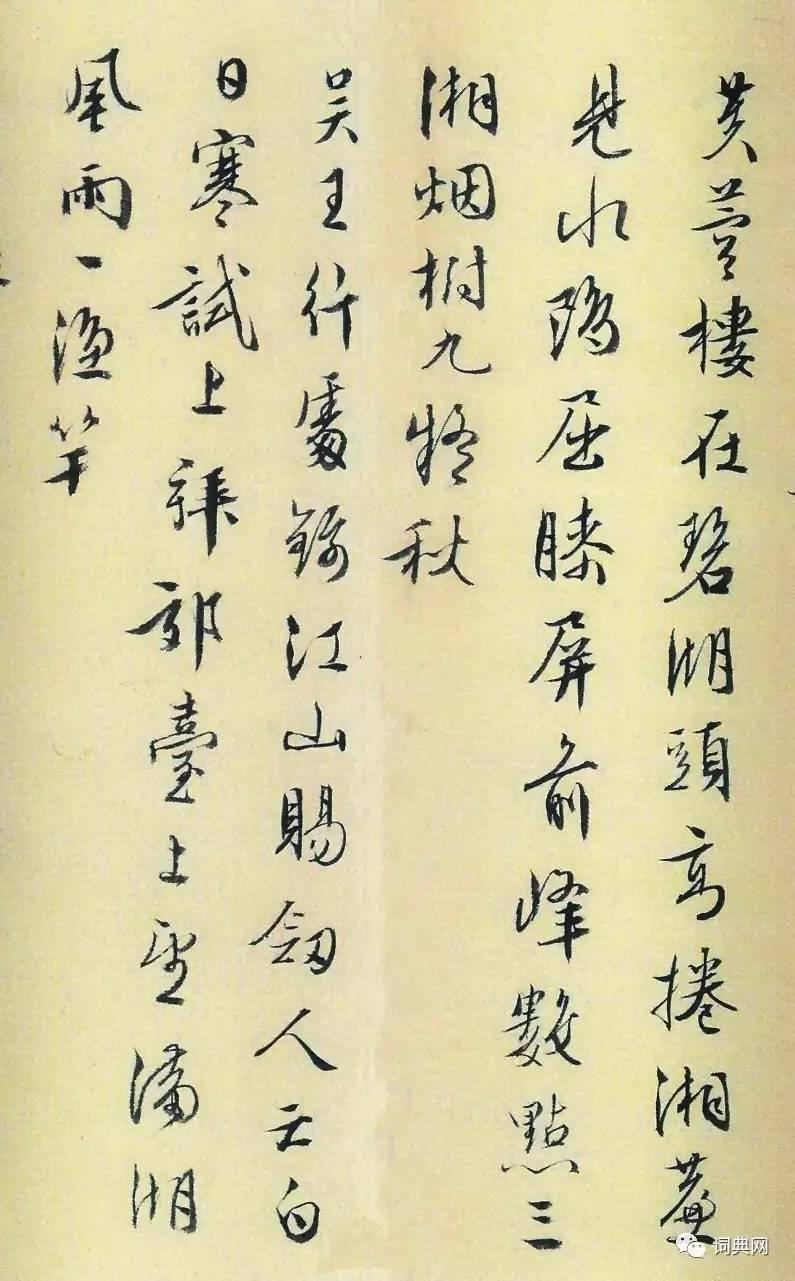 芙蓉樓在碧湖頭高捲湘簾
見水鷗屈膝屏前峰數點三
湘烟樹九嶷秋
吳王行處錦江山賜劔人亡白
日寒試上拜郊臺上望滿湖
風雨一漁竿
词典网